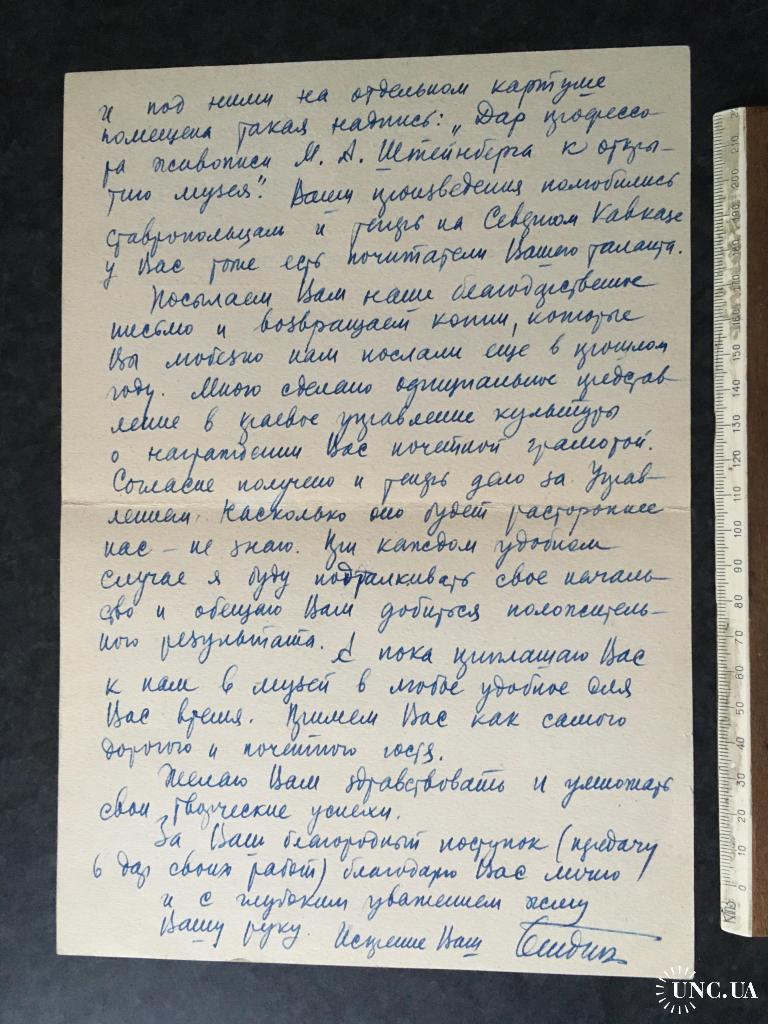 и под ними на отдельном картуше
помещена такая надпись: „Дар профессо-
ра живописи М. А. Штейнберга к откры-
тию музея". Ваши произведения полюбились
ставропольцам и теперь на Северном Кавказе
у Вас тоже есть почитатели Вашего таланта.
Посылаем Вам наше благодарственное
письмо и возвращаем копии, которые
Вы любезно нам послали еще в прошлом
году. Мною сделано официальное представ-
ление в краевое управление культуры
о награждении Вас почетной грамотой.
Согласие получено и теперь дело за Управ-
лением. Насколько оно будет расторопнее
нас – не знаю. При каждом удобном
случае я буду подталкивать свое началь-
ство и обещаю Вам добиться положитель-
ного результата. А пока приглашаю Вас
к нам в музей в любое удобное для
Вас время. Примем Вас как самого
дорогого и почетного гостя.
Желаю Вам здравствовать и умножать
свои творческие успехи.
За Ваш благородный поступок (передачу
в дар своих работ) благодарю Вас лично
и с глубоким уважением жму
Вашу руку. Искренне Ваш
UNC.UA
0 10 20 30 40 50 60 70 80 90 100 110 120 130 140 150 160 170 180 190 200 210